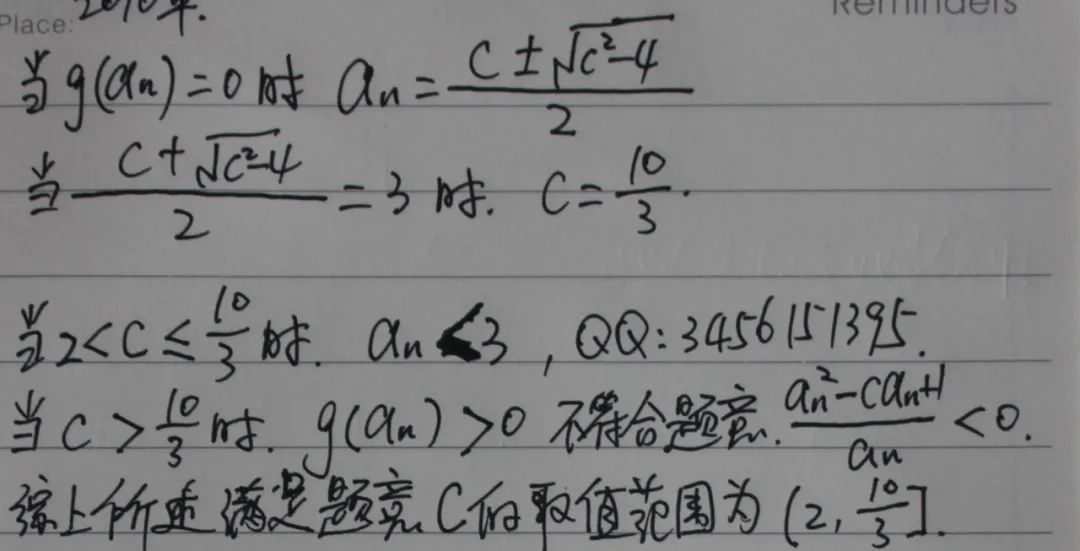 Place: 2010年.
Reminders
当g(an)=0时 an=(c±√(c²-4))/2
当(c+√(c²-4))/2=3时. c=10/3.
当2<c≤10/3时. an<3, QQ:3456151395.
当c>10/3时. g(an)>0 不符合题意. (an²-can+1)/an<0.
综上所述 满足题意 C的取值范围为(2, 10/3].